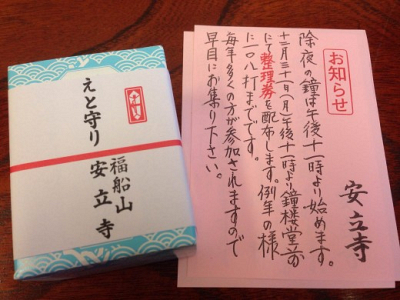 お知らせ
除夜の鐘は午後十一時より始めます。
十二月三十一日(月)午後十一時より鐘楼堂前
にて整理券を配布します。例年の様
に一〇八打までです。
毎年多くの方が参加されますので
早目にお集り下さい。
安立寺
えと守り
福船山
安立寺